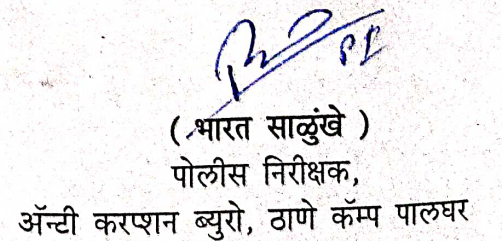 ( भारत साळुंखे )
पोलीस निरीक्षक,
ॲन्टी करप्शन ब्युरो, ठाणे कॅम्प पालघर